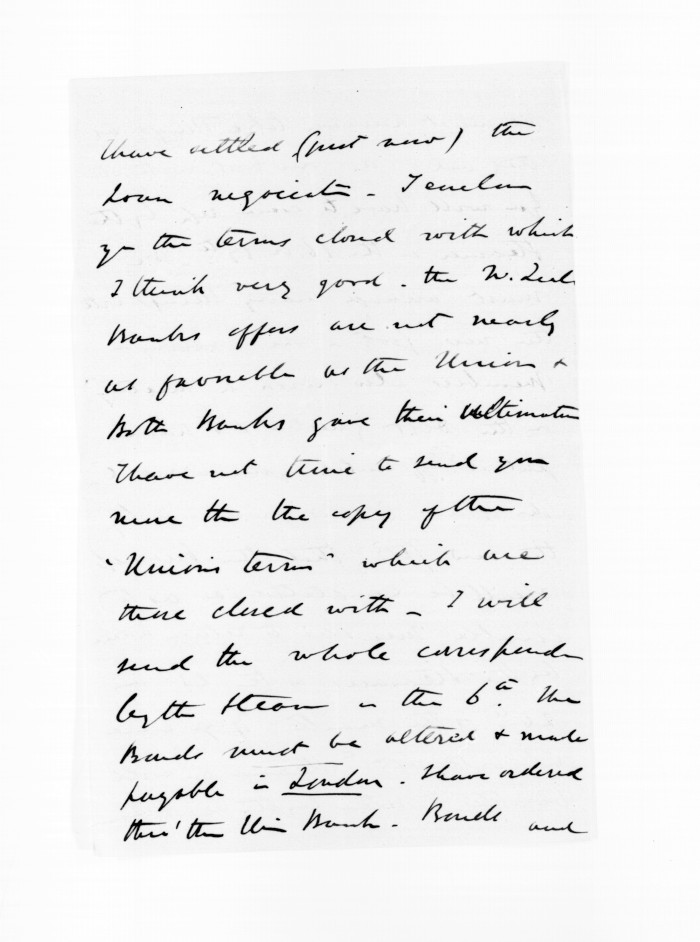 I have settled (just now) the
Loan negociatn - I enclose
yu the terms closed with which
I think very good - the N. Zeal
Banks offers are not nearly
as favorable as the Union &
Both Banks gave their ultimatum
I have not time to send you
more thn the copy of the
"Union's terms" which are
those closed with - I will
send the whole correspondn
by the Steam on the 6th. The
Bonds must be altered & made
payable in London. I have ordered
thro' the Un Bank - Bonds and